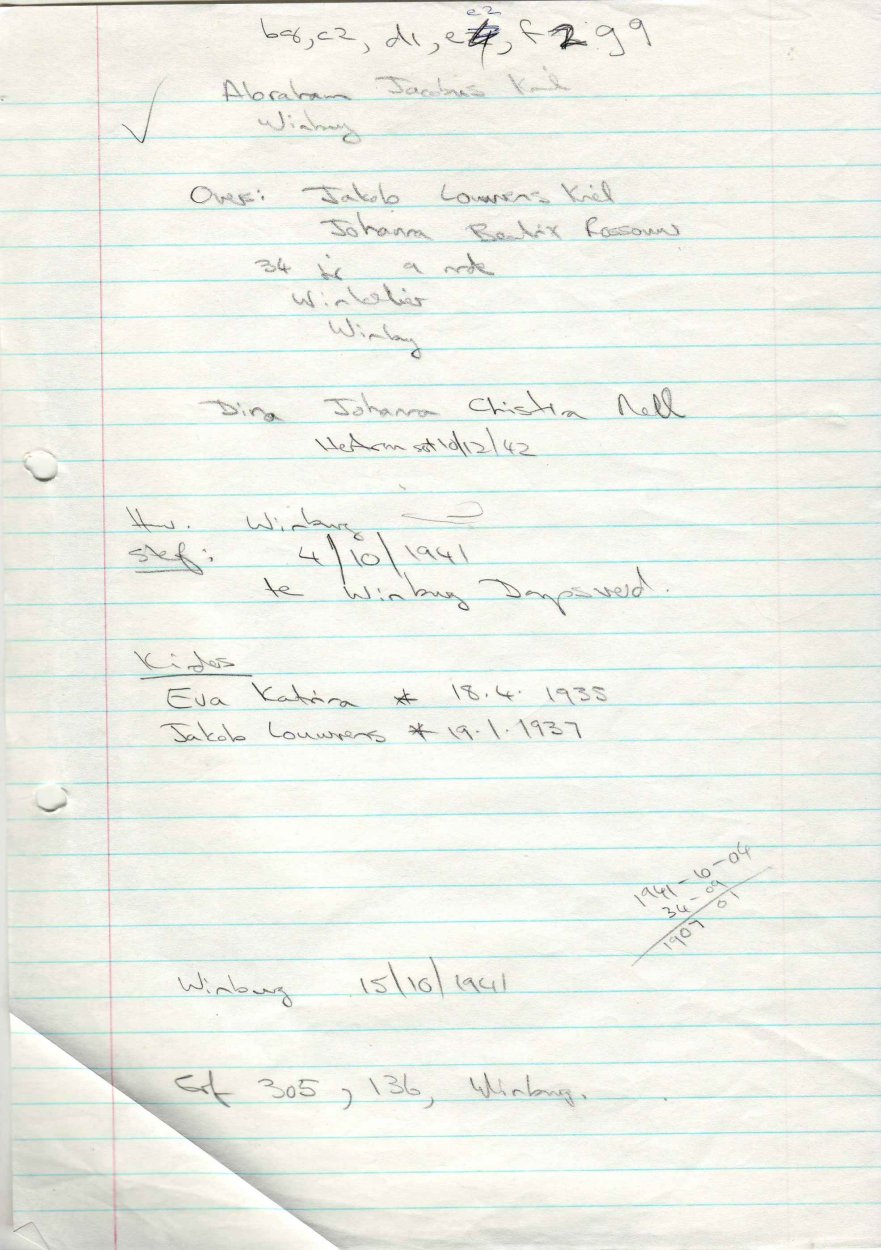 b8, c2, d1, e2, f2 g9
Abraham Jacobus Kriel
Winburg
Ouers: Jakob Louwrens Kriel
Johanna Beatrix Rossouw
34 jr 9 mde
Winkelier
Winburg
Dina Johanna Christina Nell
10/12/42
Hw. Winburg
Sterf: 4/10/1941
te Winburg Dorpsveld.
Kinders
Eva Katrina * 18.4. 1935
Jakob Louwrens * 19.1.1937
1941-10-04
34-09
1907 01
Winburg 15/10/1941
Erf 305, 136, Winburg.